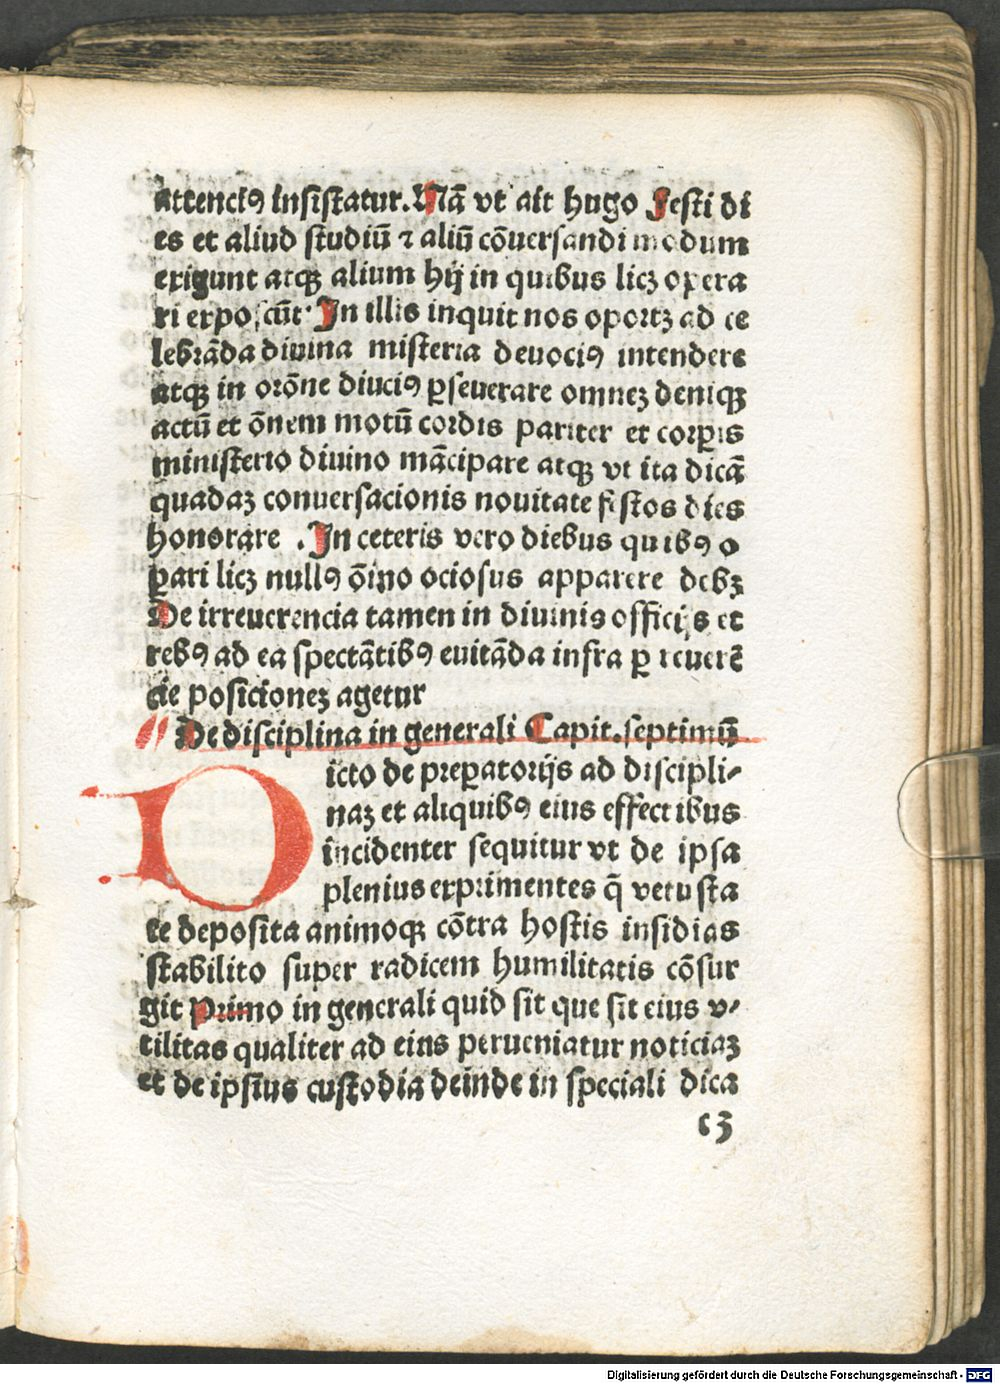 attenciꝰ insistatur. Nā vt ait hugo Festi di
es et aliud studiū ⁊ aliū cōuersandi modum
exigunt atqꝫ alium hij in quibus licꝫ opera
ri exposcūt. In illis inquit nos oportꝫ ad ce
lebrāda diuina misteria deuociꝰ intendere
atqꝫ in orōne diuciꝰ ꝑseuerare omneꝫ deniqꝫ
actū et ōnem motū cordis pariter et corꝑis
ministerio diuino mācipare atqꝫ vt ita dicā
quadaꝫ conuersacionis nouitate festos dies
honorare . In ceteris vero diebus quibꝰ o
ꝑari licꝫ nullꝰ ōino ociosus apparere debꝫ
De irreuerencia tamen in diuinis officijs et
rebꝰ ad ea spectātibꝰ euitāda infra ꝑ reuerē
cie posicioneꝫ agetur
De disciplina in generali Capit. septimū
Dicto de preꝑatorijs ad discipli-
naꝫ et aliquibꝰ eius effectibus
incidenter sequitur vt de ipsa
plenius exprimentes q̄ vetusta
te deposita animoqꝫ cōtra hostis insidias
stabilito super radicem humilitatis cōsur
git Primo in generali quid sit que sit eius v-
tilitas qualiter ad eius perueniatur noticiaꝫ
et de ipsius custodia deinde in speciali dica
c3
Digitalisierung gefördert durch die Deutsche Forschungsgemeinschaft - DFG